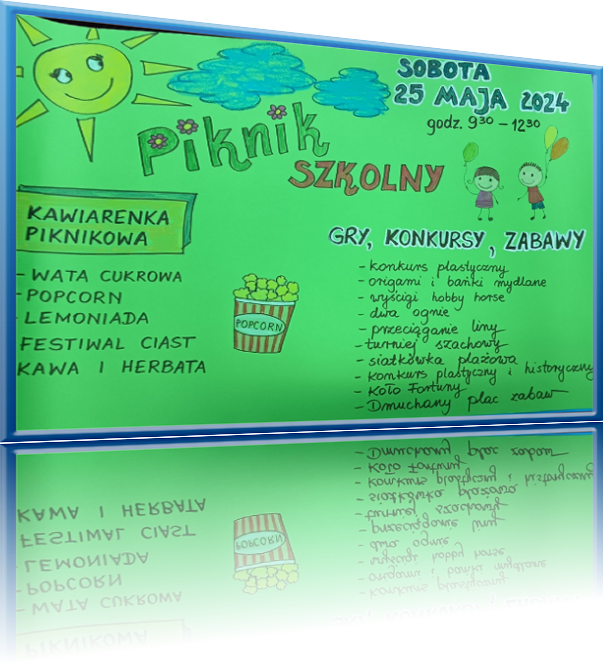 SOBOTA
25 MAJA 2024
godz. 9³⁰ – 12³⁰
Piknik
SZKOLNY
KAWIARENKA
PIKNIKOWA
- WATA CUKROWA
- POPCORN
- LEMONIADA
FESTIWAL CIAST
KAWA I HERBATA
POPCORN
GRY, KONKURSY, ZABAWY
- konkurs plastyczny
- origami i bańki mydlane
- wyścigi hobby horse
- dwa ognie
- przeciąganie liny
- turniej szachowy
- siatkówka plażowa
- konkurs plastyczny i historyczny
- Koło Fortuny
- Dmuchany plac zabaw